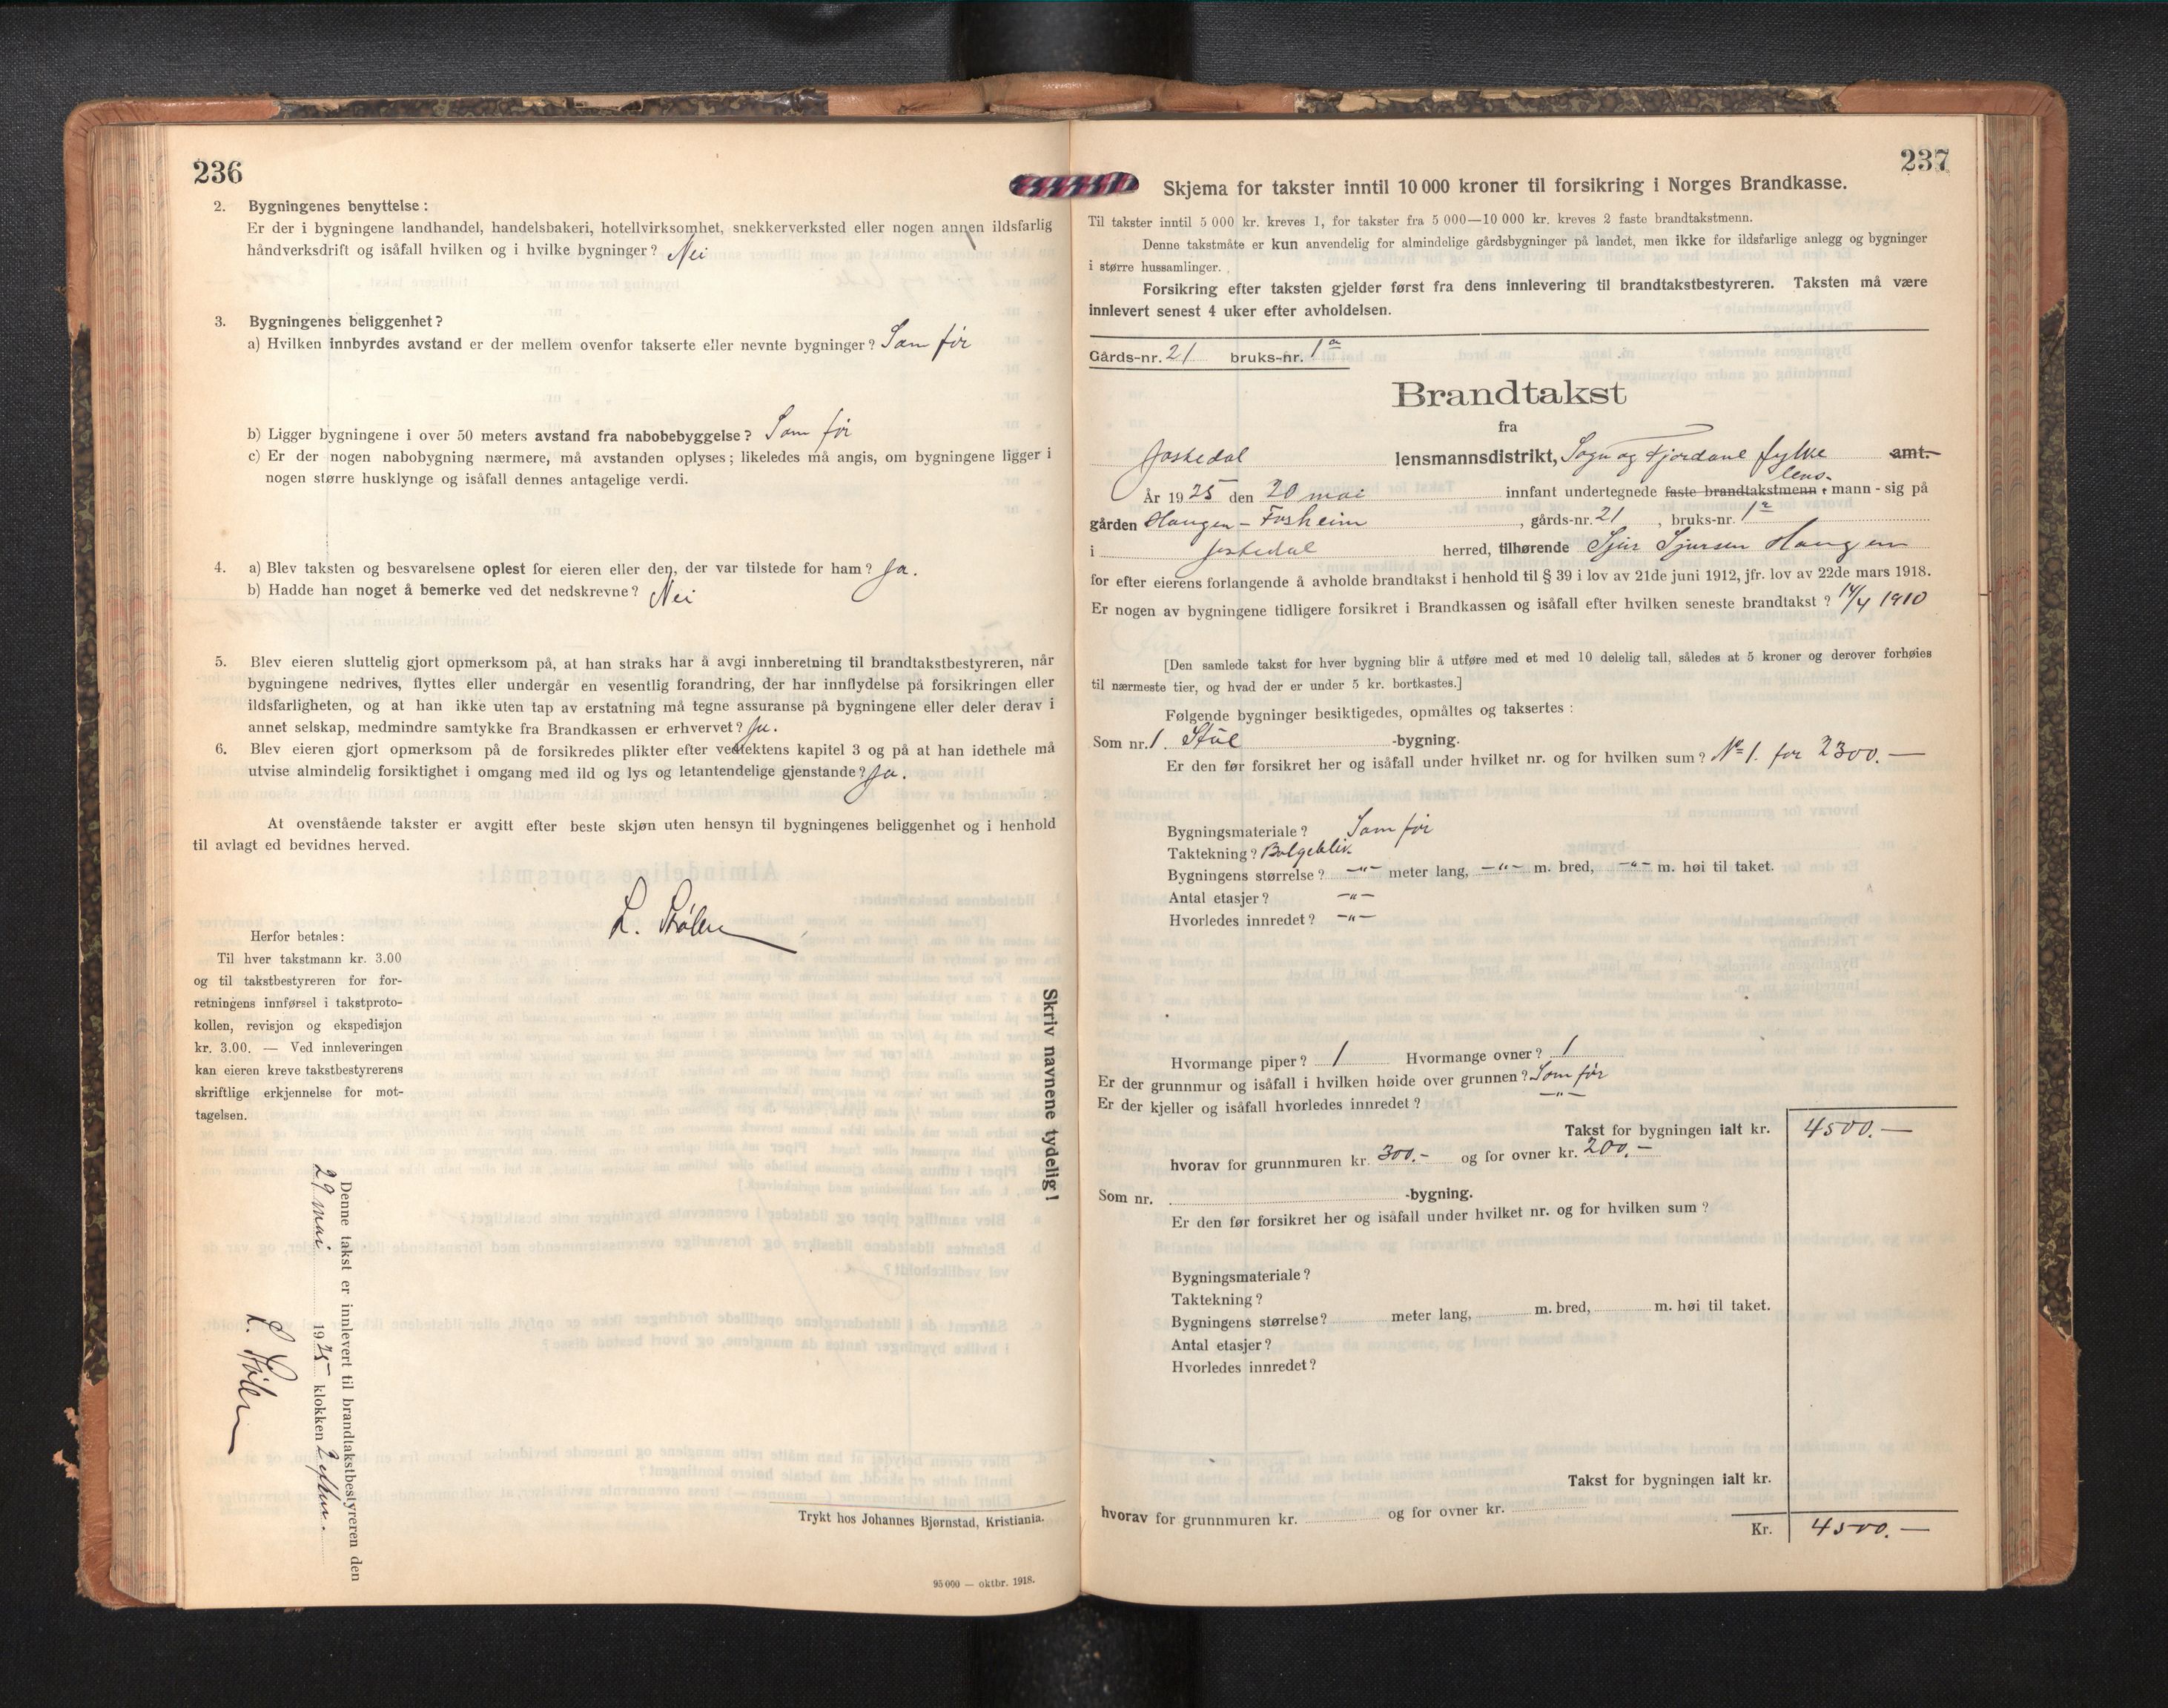 236
2. Bygningenes benyttelse :
Er der i bygningene landhandel, handelsbakeri, hotellvirksomhet, snekkerverksted eller nogen annen ildsfarlig
håndverksdrift og isåfall hvilken og i hvilke bygninger? Nei
3. Bygningenes beliggenhet?
a) Hvilken innbyrdes avstand er der mellem ovenfor takserte eller nevnte bygninger? Som før
b) Ligger bygningene i over 50 meters avstand fra nabobebyggelse? Som før
c) Er der nogen nabobygning nærmere, må avstanden oplyses; likeledes må angis, om bygningene ligger i
nogen større husklynge og isåfall dennes antagelige verdi.
4. a) Blev taksten og besvarelsene oplest for eieren eller den, der var tilstede for ham? Ja.
b) Hadde han noget å bemerke ved det nedskrevne? Nei
5. Blev eieren sluttelig gjort opmerksom på, at han straks har å avgi innberetning til brandtakstbestyreren, når
bygningene nedrives, flyttes eller undergår en vesentlig forandring, der har innflydelse på forsikringen eller
ildsfarligheten, og at han ikke uten tap av erstatning må tegne assuranse på bygningene eller deler derav i
annet selskap, medmindre samtykke fra Brandkassen er erhvervet? Ja.
6. Blev eieren gjort opmerksom på de forsikredes plikter efter vedtektens kapitel 3 og på at han idethele må
utvise almindelig forsiktighet i omgang med ild og lys og letantendelige gjenstande? Ja.
At ovenstående takster er avgitt efter beste skjøn uten hensyn til bygningenes beliggenhet og i henhold
til avlagt ed bevidnes herved.
L. Stølen
Herfor betales:
Til hver takstmann kr. 3.00
og til takstbestyreren for for-
retningens innførsel i takstproto-
kollen, revisjon og ekspedisjon
kr. 3.00. — Ved innleveringen
kan eieren kreve takstbestyrerens
skriftlige erkjennelse for mot-
tagelsen.
Skriv navnene tydelig!
Denne takst er innlevert til brandtakstbestyreren den
29 mai 1925 klokken 2 efterm.
L. Stølen
Trykt hos Johannes Bjørnstad, Kristiania.
95 000 — oktbr. 1918.
237
Skjema for takster inntil 10 000 kroner til forsikring i Norges Brandkasse.
Til takster inntil 5 000 kr. kreves 1, for takster fra 5 000—10 000 kr. kreves 2 faste brandtakstmenn.
Denne takstmåte er kun anvendelig for almindelige gårdsbygninger på landet, men ikke for ildsfarlige anlegg og bygninger
i større hussamlinger.
Forsikring efter taksten gjelder først fra dens innlevering til brandtakstbestyreren. Taksten må være
innlevert senest 4 uker efter avholdelsen.
Gårds-nr. 21 bruks-nr. 1 a
Brandtakst
fra
Jostedal lensmannsdistrikt, Sogn og Fjordane fylke amt.
År 1925 den 20 mai innfant undertegnede faste brandtakstmenn lens- mann - sig på
gården Haugen - Fosheim, gårds-nr. 21, bruks-nr. 1 a
i Jostedal herred, tilhørende Sjur Sjursen Haugen
for efter eierens forlangende å avholde brandtakst i henhold til § 39 i lov av 21de juni 1912, jfr. lov av 22de mars 1918.
Er nogen av bygningene tidligere forsikret i Brandkassen og isåfall efter hvilken seneste brandtakst? 14/4 1910
[Den samlede takst for hver bygning blir å utføre med et med 10 delelig tall, således at 5 kroner og derover forhøies
til nærmeste tier, og hvad der er under 5 kr. bortkastes.]
Følgende bygninger besiktigedes, opmåltes og taksertes :
Som nr. 1. Stue -bygning.
Er den før forsikret her og isåfall under hvilket nr. og for hvilken sum? No 1. for 2300.—
Bygningsmateriale? Som før
Taktekning? Bølgeblik
Bygningens størrelse? —"— meter lang, —"— m. bred, —"— m. høi til taket.
Antal etasjer? —"—
Hvorledes innredet? —"—
Hvormange piper? 1 Hvormange ovner? 1
Er der grunnmur og isåfall i hvilken høide over grunnen? Som før
Er der kjeller og isåfall hvorledes innredet? —"—
Takst for bygningen ialt kr. 4500.—
hvorav for grunnmuren kr. 300.— og for ovner kr. 200.—
Som nr. -bygning.
Er den før forsikret her og isåfall under hvilket nr. og for hvilken sum?
Bygningsmateriale?
Taktekning?
Bygningens størrelse? meter lang, m. bred, m. høi til taket.
Antal etasjer?
Hvorledes innredet?
Takst for bygningen ialt kr.
hvorav for grunnmuren kr. og for ovner kr.
Kr. 4500.—